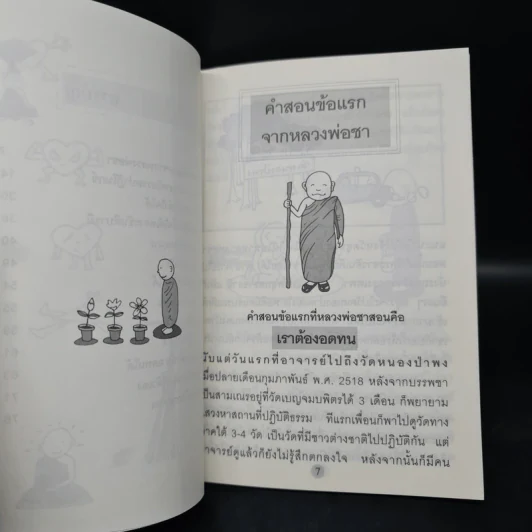 คำสอนข้อแรก
จากหลวงพ่อชา
คำสอนข้อแรกที่หลวงพ่อชาสอนคือ
เราต้องอดทน
นับแต่วันแรกที่อาจารย์ไปถึงวัดหนองป่าพง
เมื่อปลายเดือนกุมภาพันธ์ พ.ศ. 2518 หลังจากบรรพชา
เป็นสามเณรอยู่ที่วัดเบญจมบพิตรได้ 3 เดือน ก็พยายาม
แสวงหาสถานที่ปฏิบัติธรรม ทีแรกเพื่อนก็พาไปดูวัดทาง
ภาคใต้ 3-4 วัด เป็นวัดที่มีชาวต่างชาติไปปฏิบัติกัน แต่
อาจารย์ดูแล้วก็ยังไม่รู้สึกตกลงใจ หลังจากนั้นก็มีคน
7